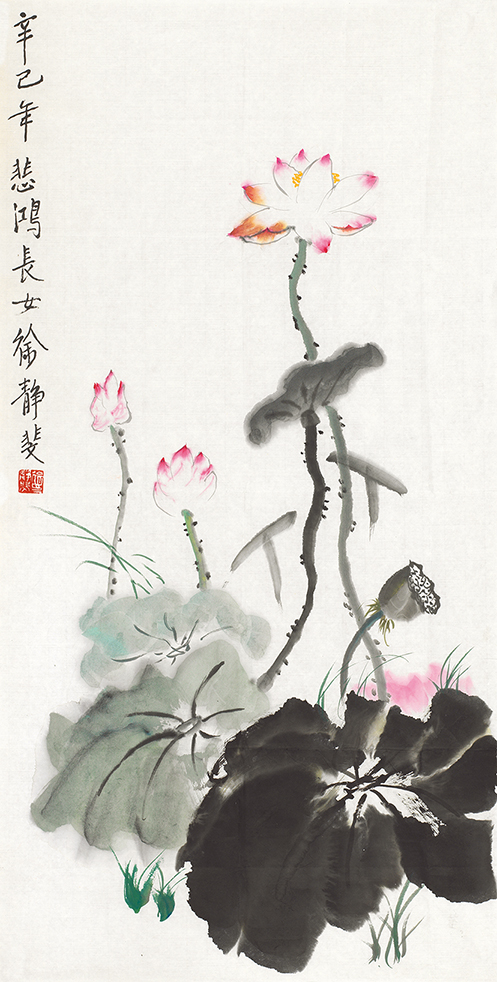 辛巳年悲鸿長女徐静斐